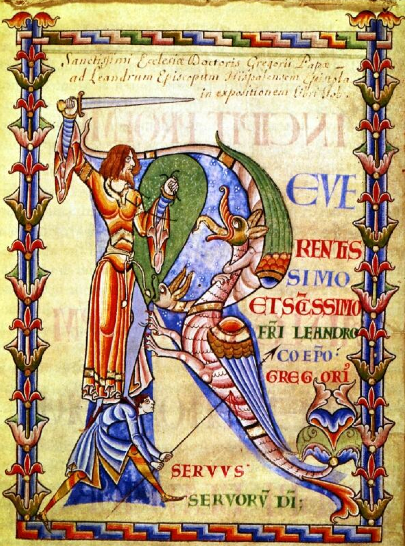 Sanctissimi Ecclesiæ Doctoris Gregorii Papæ
ad Leandrum Episcopum Hispalensem Epistola
in expositionem libri Iob.
REVE
RENTIS
SIMO
ET SC̄ISSIMO
FR̄I LEANDRO
COEP̄O:
GREGORI᾿
SERVVS
SERVORV̄ DI̅: